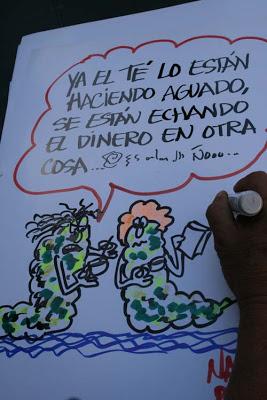 YA EL TÉ LO ESTÁN
HACIENDO AGUADO,
SE ESTÁN ECHANDO
EL DINERO EN OTRA
COSA...
NA